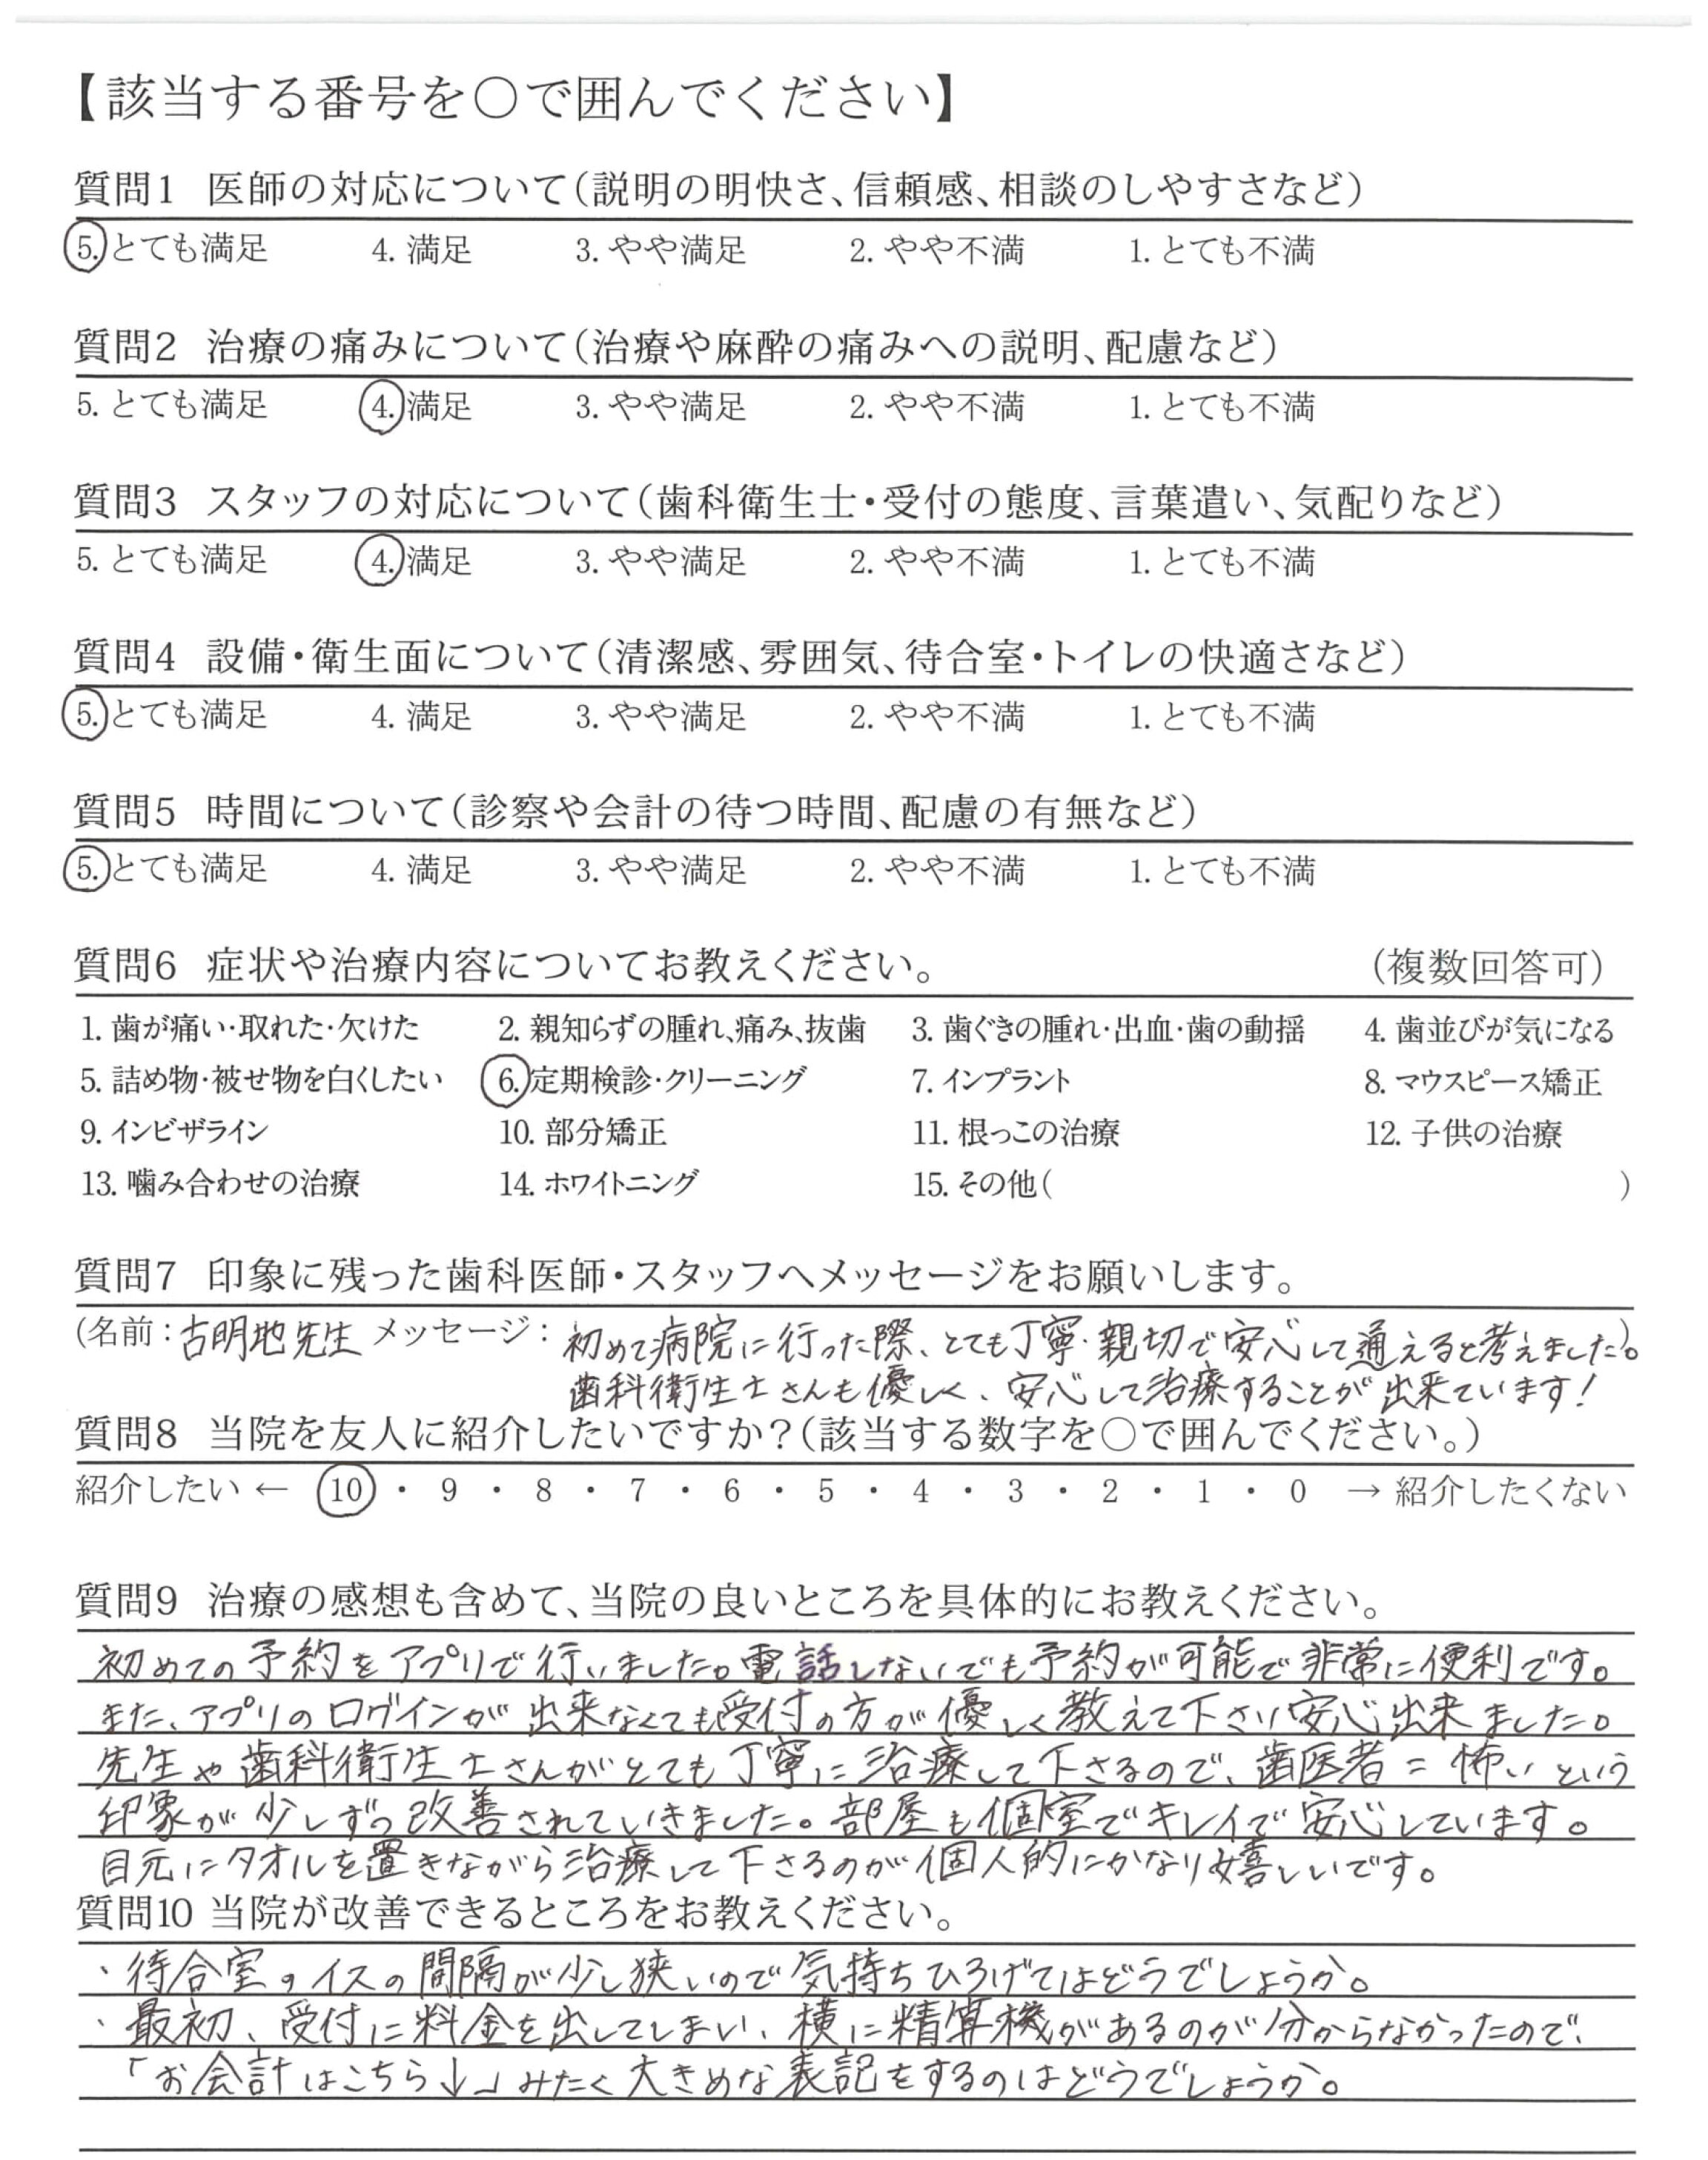 【該当する番号を○で囲んでください】
質問1 医師の対応について(説明の明快さ、信頼感、相談のしやすさなど)
5. とても満足 4. 満足 3. やや満足 2. やや不満 1. とても不満
質問2 治療の痛みについて(治療や麻酔の痛みへの説明、配慮など)
5. とても満足 4. 満足 3. やや満足 2. やや不満 1. とても不満
質問3 スタッフの対応について(歯科衛生士・受付の態度、言葉遣い、気配りなど)
5. とても満足 4. 満足 3. やや満足 2. やや不満 1. とても不満
質問4 設備・衛生面について(清潔感、雰囲気、待合室・トイレの快適さなど)
5. とても満足 4. 満足 3. やや満足 2. やや不満 1. とても不満
質問5 時間について(診察や会計の待つ時間、配慮の有無など)
5. とても満足 4. 満足 3. やや満足 2. やや不満 1. とても不満
質問6 症状や治療内容についてお教えください。 (複数回答可)
1. 歯が痛い・取れた・欠けた 2. 親知らずの腫れ、痛み、抜歯 3. 歯ぐきの腫れ・出血・歯の動揺 4. 歯並びが気になる
5. 詰め物・被せ物を白くしたい 6. 定期検診・クリーニング 7. インプラント 8. マウスピース矯正
9. インビザライン 10. 部分矯正 11. 根っこの治療 12. 子供の治療
13. 噛み合わせの治療 14. ホワイトニング 15. その他( )
質問7 印象に残った歯科医師・スタッフへメッセージをお願いします。
(名前：古明地先生 メッセージ：初めて病院に行った際、とても丁寧・親切で安心して通えると考えました。)
歯科衛生士さんも優しく、安心して治療することが出来ています！
質問8 当院を友人に紹介したいですか？(該当する数字を○で囲んでください。)
紹介したい ← 10 ・ 9 ・ 8 ・ 7 ・ 6 ・ 5 ・ 4 ・ 3 ・ 2 ・ 1 ・ 0 → 紹介したくない
質問9 治療の感想も含めて、当院の良いところを具体的にお教えください。
初めての予約をアプリで行いました。電話しないでも予約が可能で非常に便利です。
また、アプリのログインが出来なくても受付の方が優しく教えて下さい安心出来ました。
先生や歯科衛生士さんがとても丁寧に治療して下さるので、歯医者＝怖いという
印象が少しずつ改善されていきました。部屋も個室でキレイで安心しています。
目元にタオルを置きながら治療して下さるのが個人的にかなり嬉しいです。
質問10 当院が改善できるところをお教えください。
・待合室のイスの間隔が少し狭いので気持ちひろげてはどうでしょうか。
・最初、受付に料金を出してしまい、横に精算機があるのが分からなかったので、
「お会計はこちら↓」みたく大きめな表記をするのはどうでしょうか。